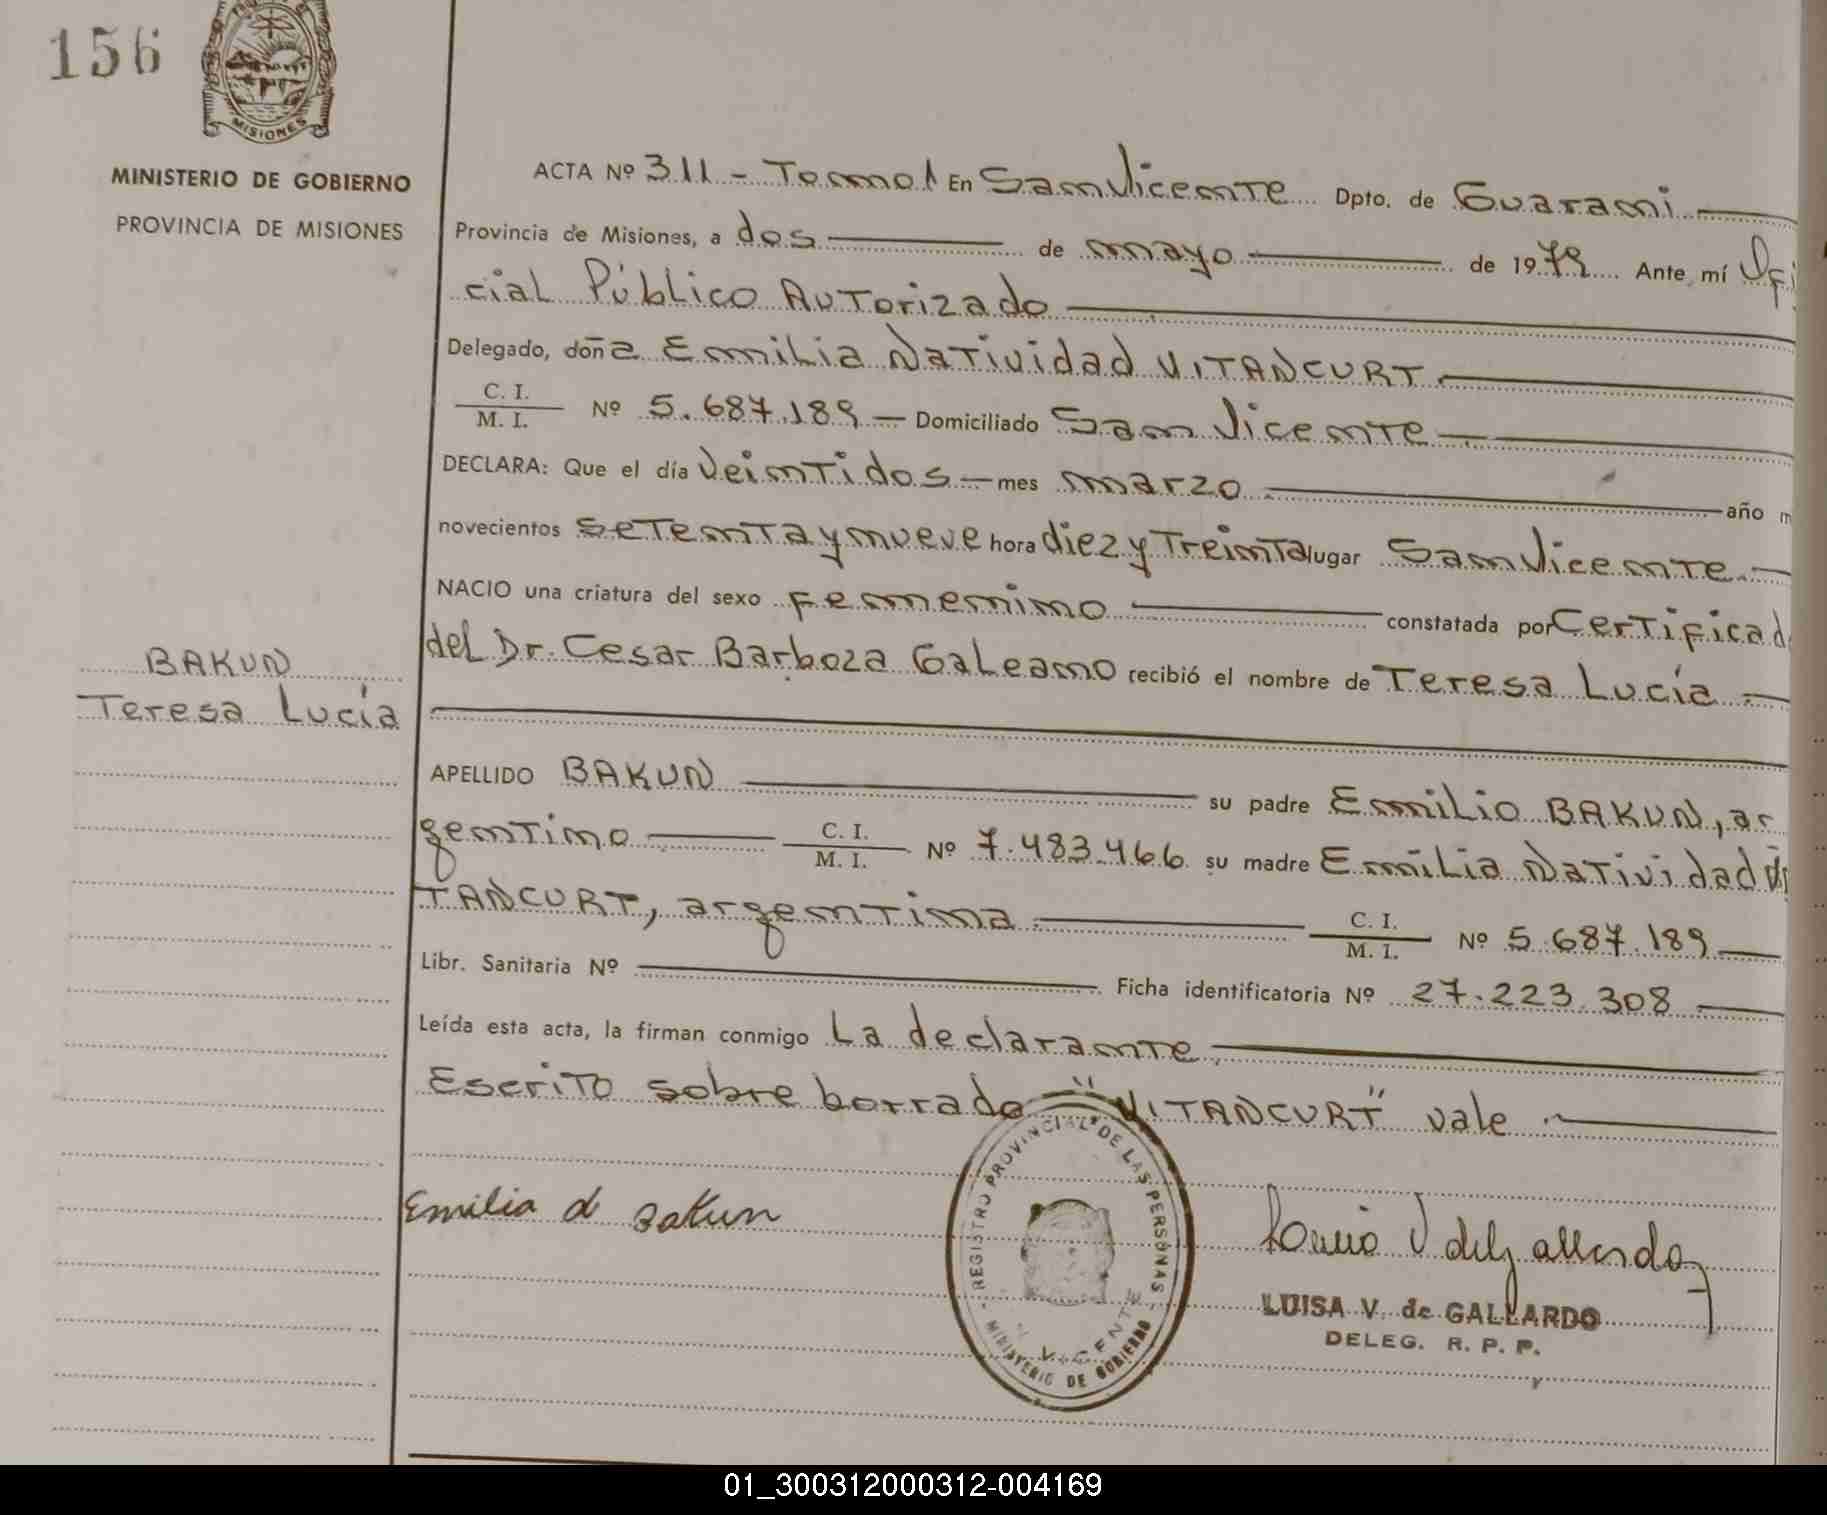 156
MISIONES
MINISTERIO DE GOBIERNO
PROVINCIA DE MISIONES
BAKUN
Teresa Lucía
ACTA Nº 311 - Tomo I En San Vicente Dpto. de Guaraní
Provincia de Misiones, a dos de mayo de 1979 Ante mí Ofi
cial Público Autorizado
Delegado, doña Emilia Natividad VITANCURT
C. I.
M. I. Nº 5.687.189 — Domiciliado San Vicente
DECLARA: Que el día veintidos — mes marzo año m
novecientos setenta y nueve hora diez y treinta lugar San Vicente
NACIO una criatura del sexo femenino constatada por Certificad
del Dr. Cesar Barboza Galeano recibió el nombre de Teresa Lucía
APELLIDO BAKUN su padre Emilio BAKUN, ar
gentino C. I.
M. I. Nº 7.483.466 su madre Emilia Natividad VI
TANCURT, argentina C. I.
M. I. Nº 5.687.189
Libr. Sanitaria Nº Ficha identificatoria Nº 27.223.308
Leída esta acta, la firman conmigo La declarante
Escrito sobre borrado "VITANCURT" vale
Emilia d Bakun
REGISTRO PROVINCIAL DE LAS PERSONAS
MINISTERIO DE GOBIERNO
VICENTE
LUISA V. de GALLARDO
DELEG. R. P. P.
01_300312000312-004169